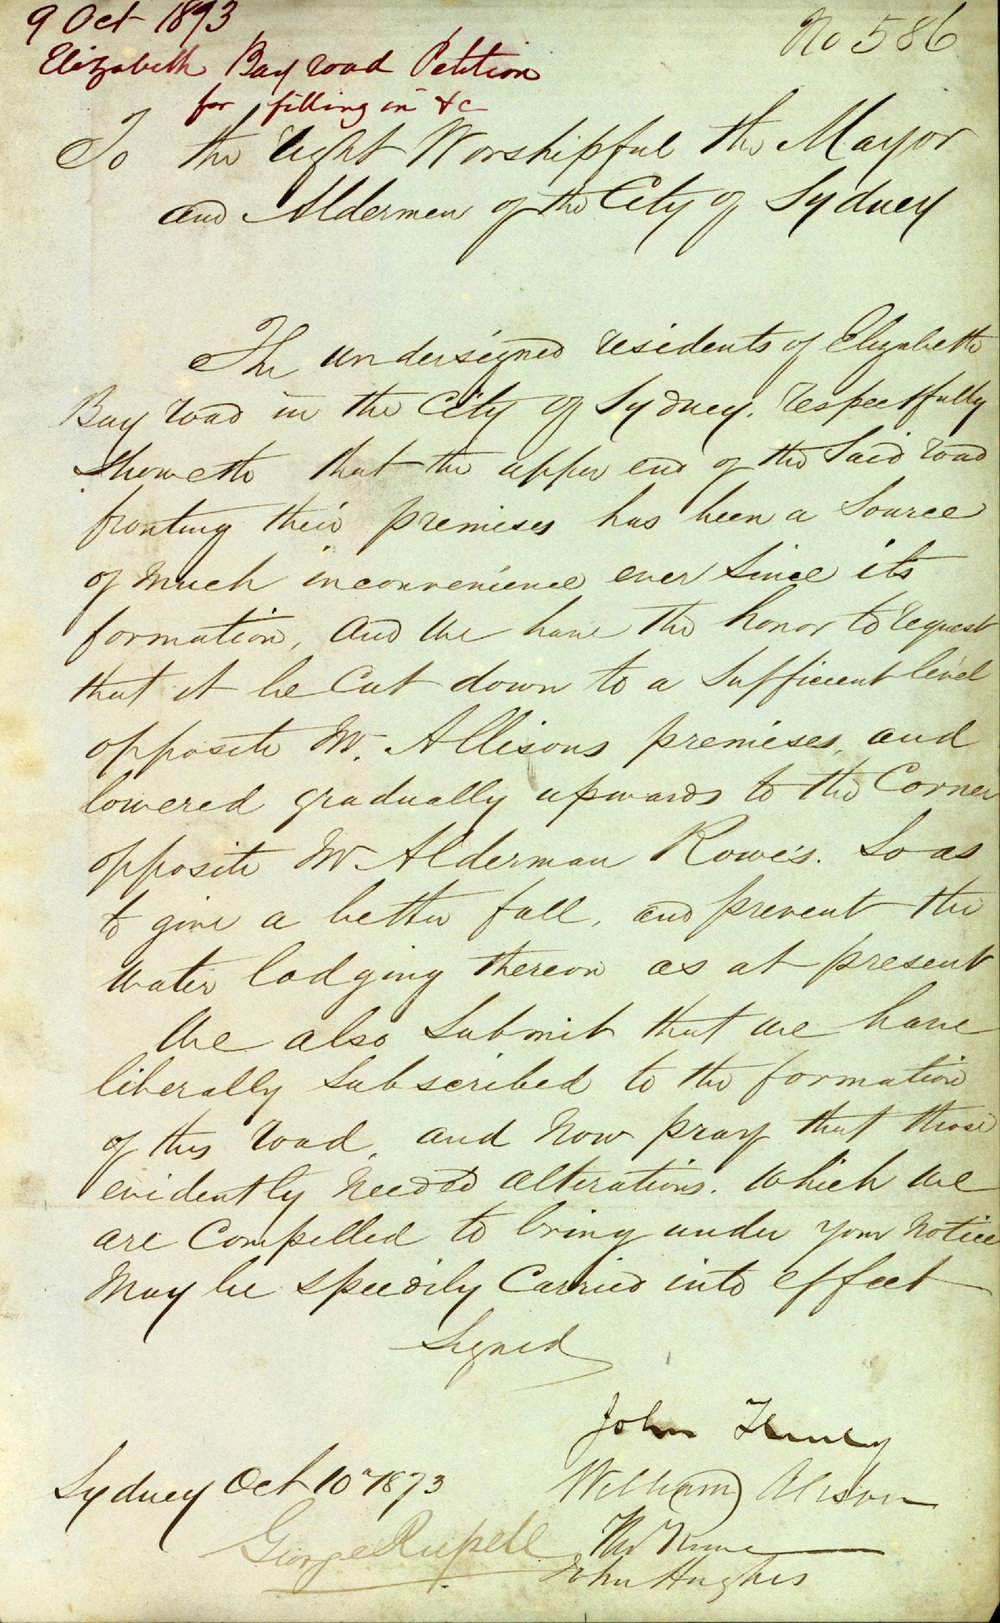 9 Oct 1873
No 586
Elizabeth Bay road Petition
for filling in &c
To the Right Worshipful the Mayor
and Aldermen of the City of Sydney
The undersigned residents of Elizabeth
Bay road in the City of Sydney. respectfully
Sheweth that the upper end of the Said road
fronting their premises has been a Source
of much inconvenience ever Since its
formation, and we have the honor to request
that it be Cut down to a Sufficient level
opposite Mr. Allisons premises, and
lowered gradually upwards to the Corner
opposite Mr Alderman Rowe's. So as
to give a better fall, and prevent the
water lodging thereon as at present
We also Submit that we have
liberally Subscribed to the formation
of this road, and now pray that those
evidently needed alterations. which we
are Compelled to bring under your Notice
May be speedily Carried into effect
Signed
John
William Alison
Sydney Oct 10th 1873
George Russell
John Hughes